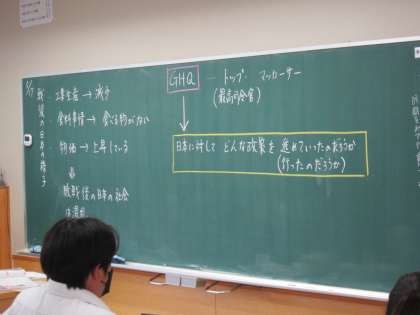 戦後の日本の様子
・工業生産 → 減少
・食料事情 → 食べる物がない
・物価 → 上昇している
敗戦後の日本の社会
GHQ ― トップ・マッカーサー
(最高司令官)
日本に対して どんな政策を 進めていったのだろうか
(行ったのだろうか)